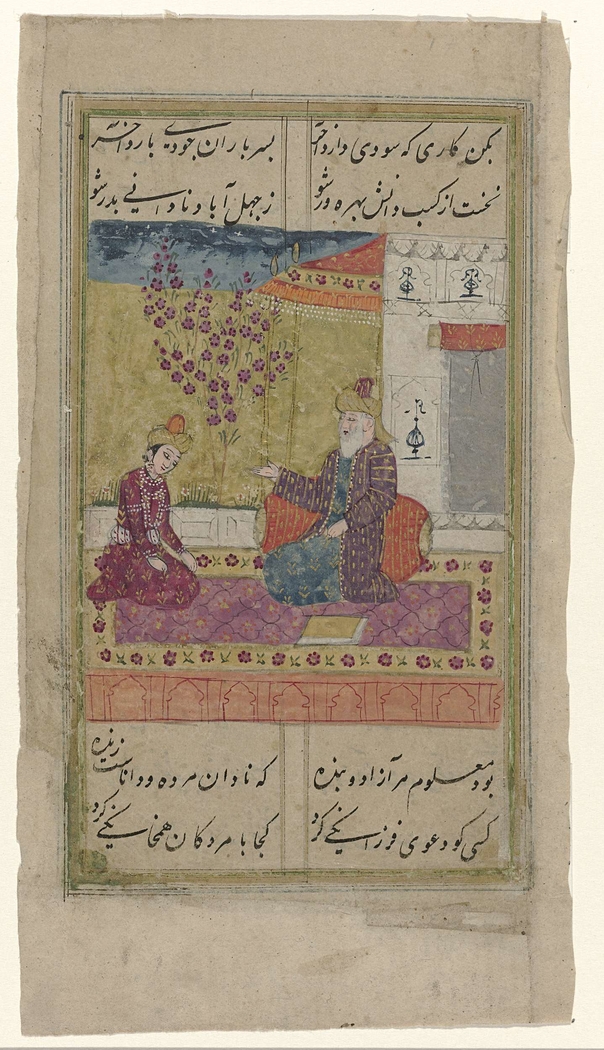 بکن کاری که سودی دارد آخر بسر باران جودی بارد آخر
نخست از کسب دانش بهره ور شو ز جهل آباد نادانی بدر شو
بود معلوم هر آزاد و بنده که نادان مرده و داناست زنده
کسی کو دعوی فرزانگی کرد کجا با مردگان همخانگی کرد